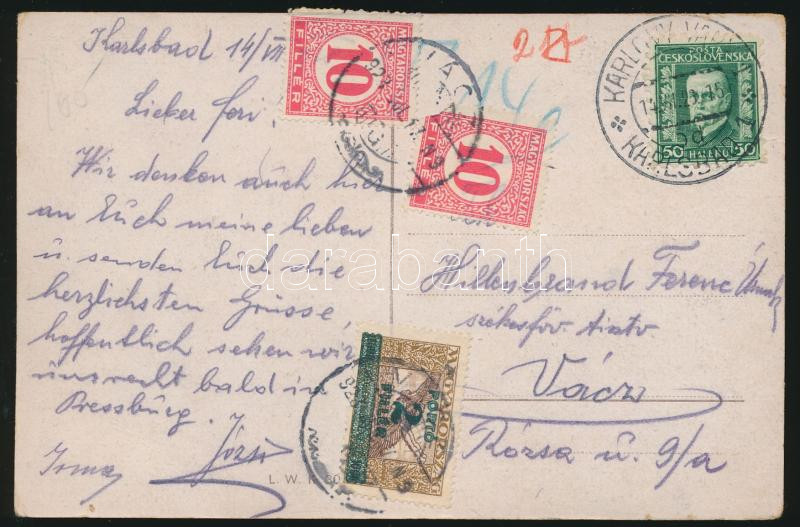 Karlsbad 14/VII
Lieber Feri,
Wir denken auch hier
an Euch meine lieben
u. senden Euch die
herzlichsten Grüsse,
hoffentlich sehen wir
uns recht bald in
Pressburg.
Irma
Józsi
L. W. K.
10
FILLÉR
MAGYARORSZÁG
10
FILLÉR
MAGYARORSZÁG
214
POŠTA
ČESKOSLOVENSKA
50 HALÉŘŮ 50
KARLOVY VARY 1
KARLSBAD 1
MAGYARORSZÁG
PORTÓ
2
FILLÉR
Hillenbrand Ferenc Úrnak
székesfőv.
Vácz
Rózsa u. 9/a
darabanth